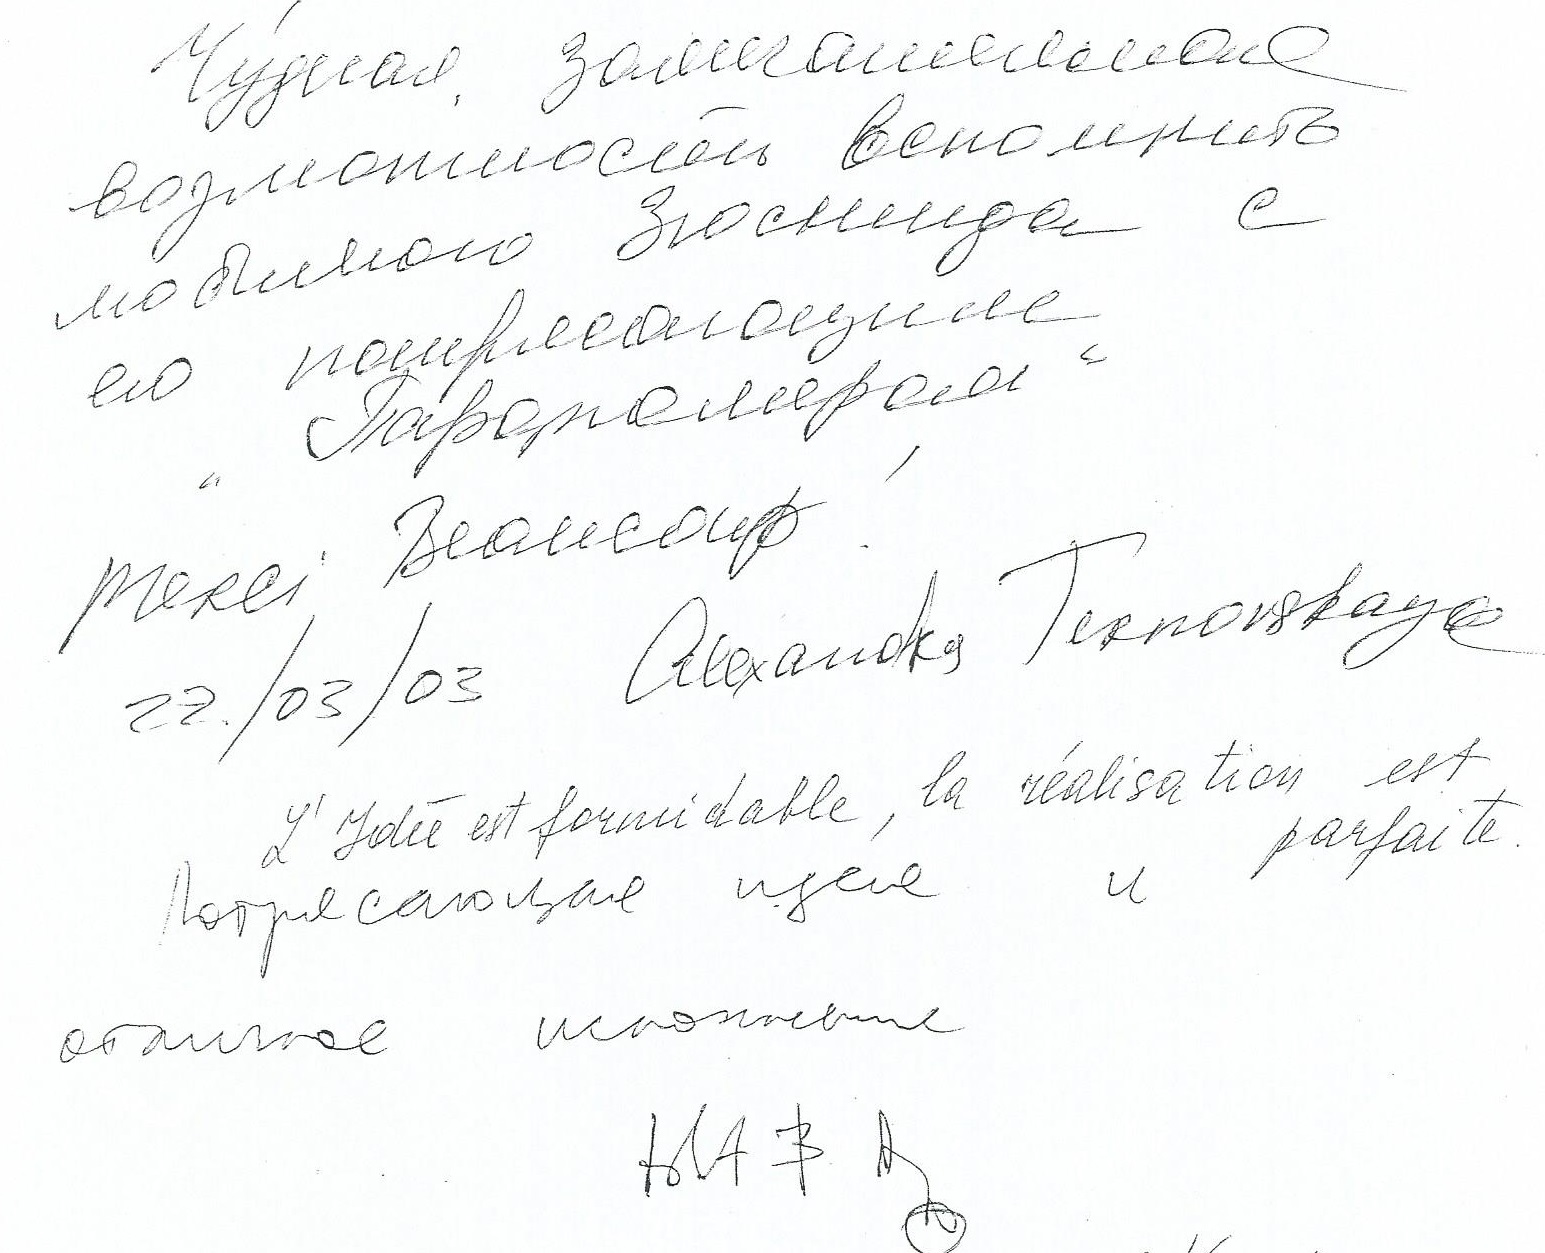 Чудная, замечательная
возможность вспомнить
любимого Зюскинда с
его потрясающим
"Парфюмером"
Merci Beaucoup!
22./03/03 Alexandra Ternovskaya
L'Idée est formidable, la réalisation est
parfaite.
Потрясающая идея и
отличное исполнение